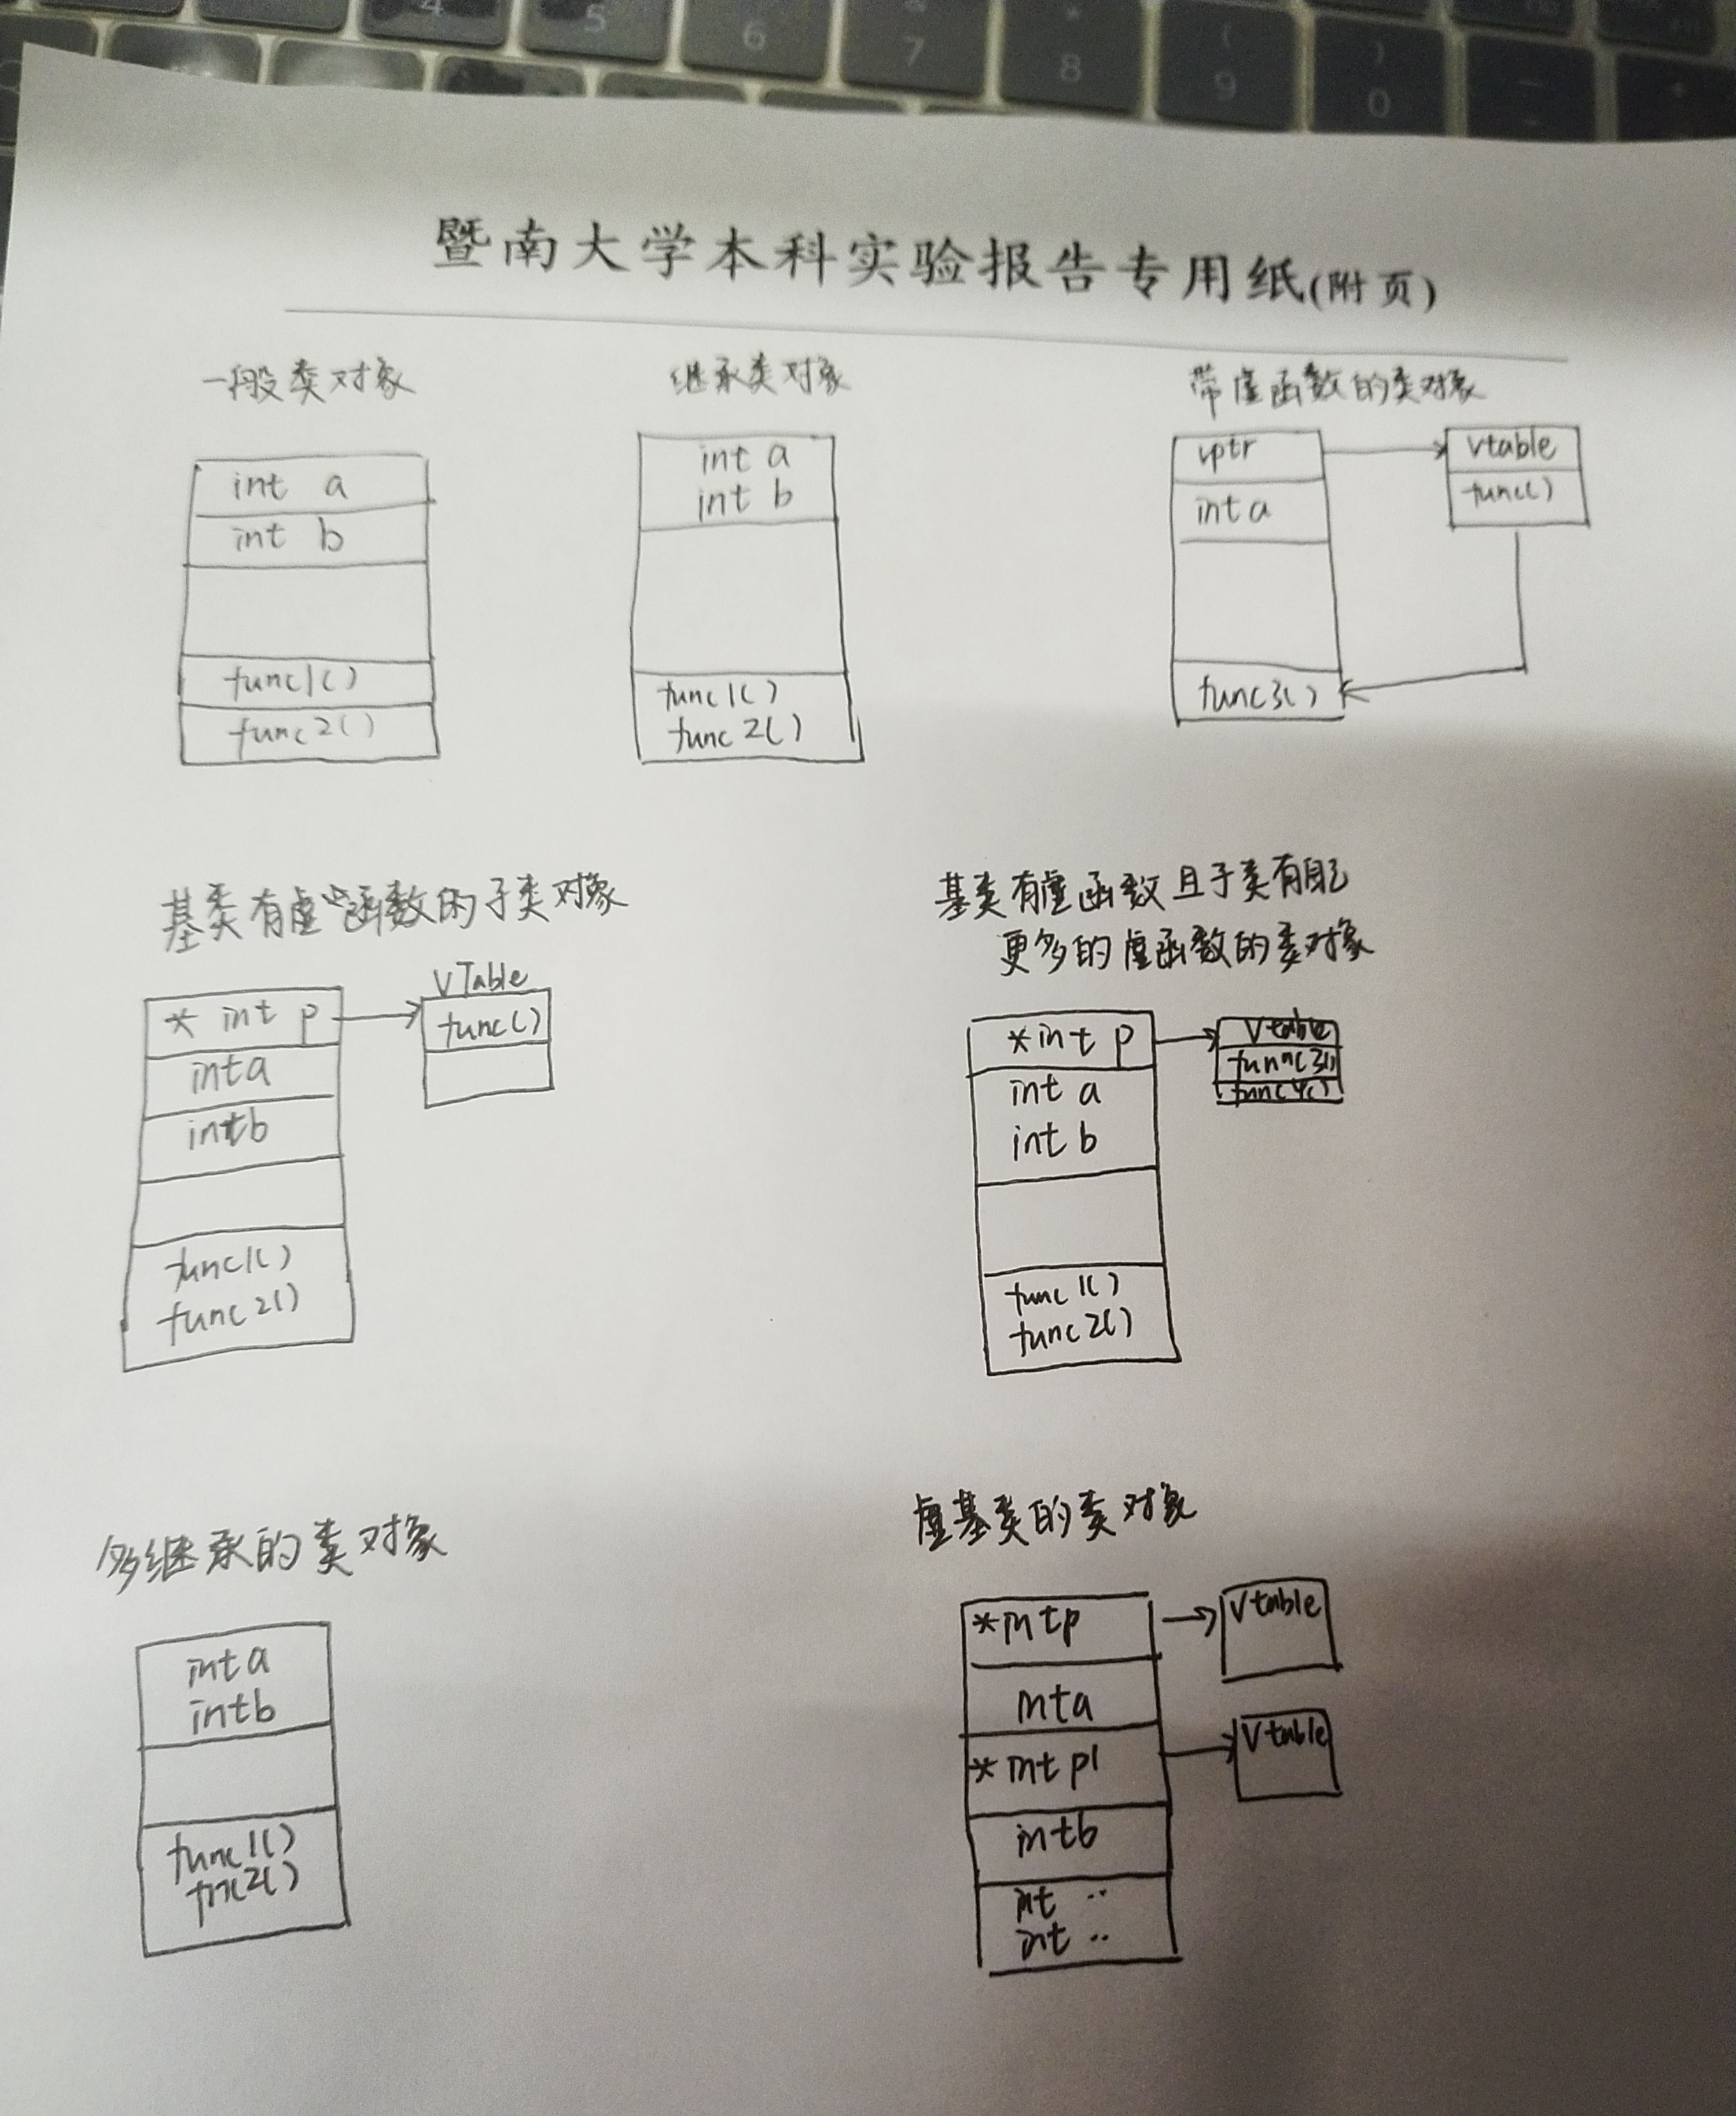 4 5 6 7 8 9 0
暨南大学本科实验报告专用纸(附页)
一般类对象
int a
int b
func1()
func2()
继承类对象
int a
int b
func1()
func2()
带虚函数的类对象
vptr
int a
func3()
vtable
func()
基类有虚函数的子类对象
* int p
int a
int b
func1()
func2()
VTable
func()
基类有虚函数且子类有自己
更多的虚函数的类对象
*int p
int a
int b
func1()
func2()
Vtable
func3()
func4()
多继承的类对象
int a
int b
func1()
func2()
虚基类的类对象
*int p
int a
*int p1
int b
int ..
int ..
Vtable
Vtable